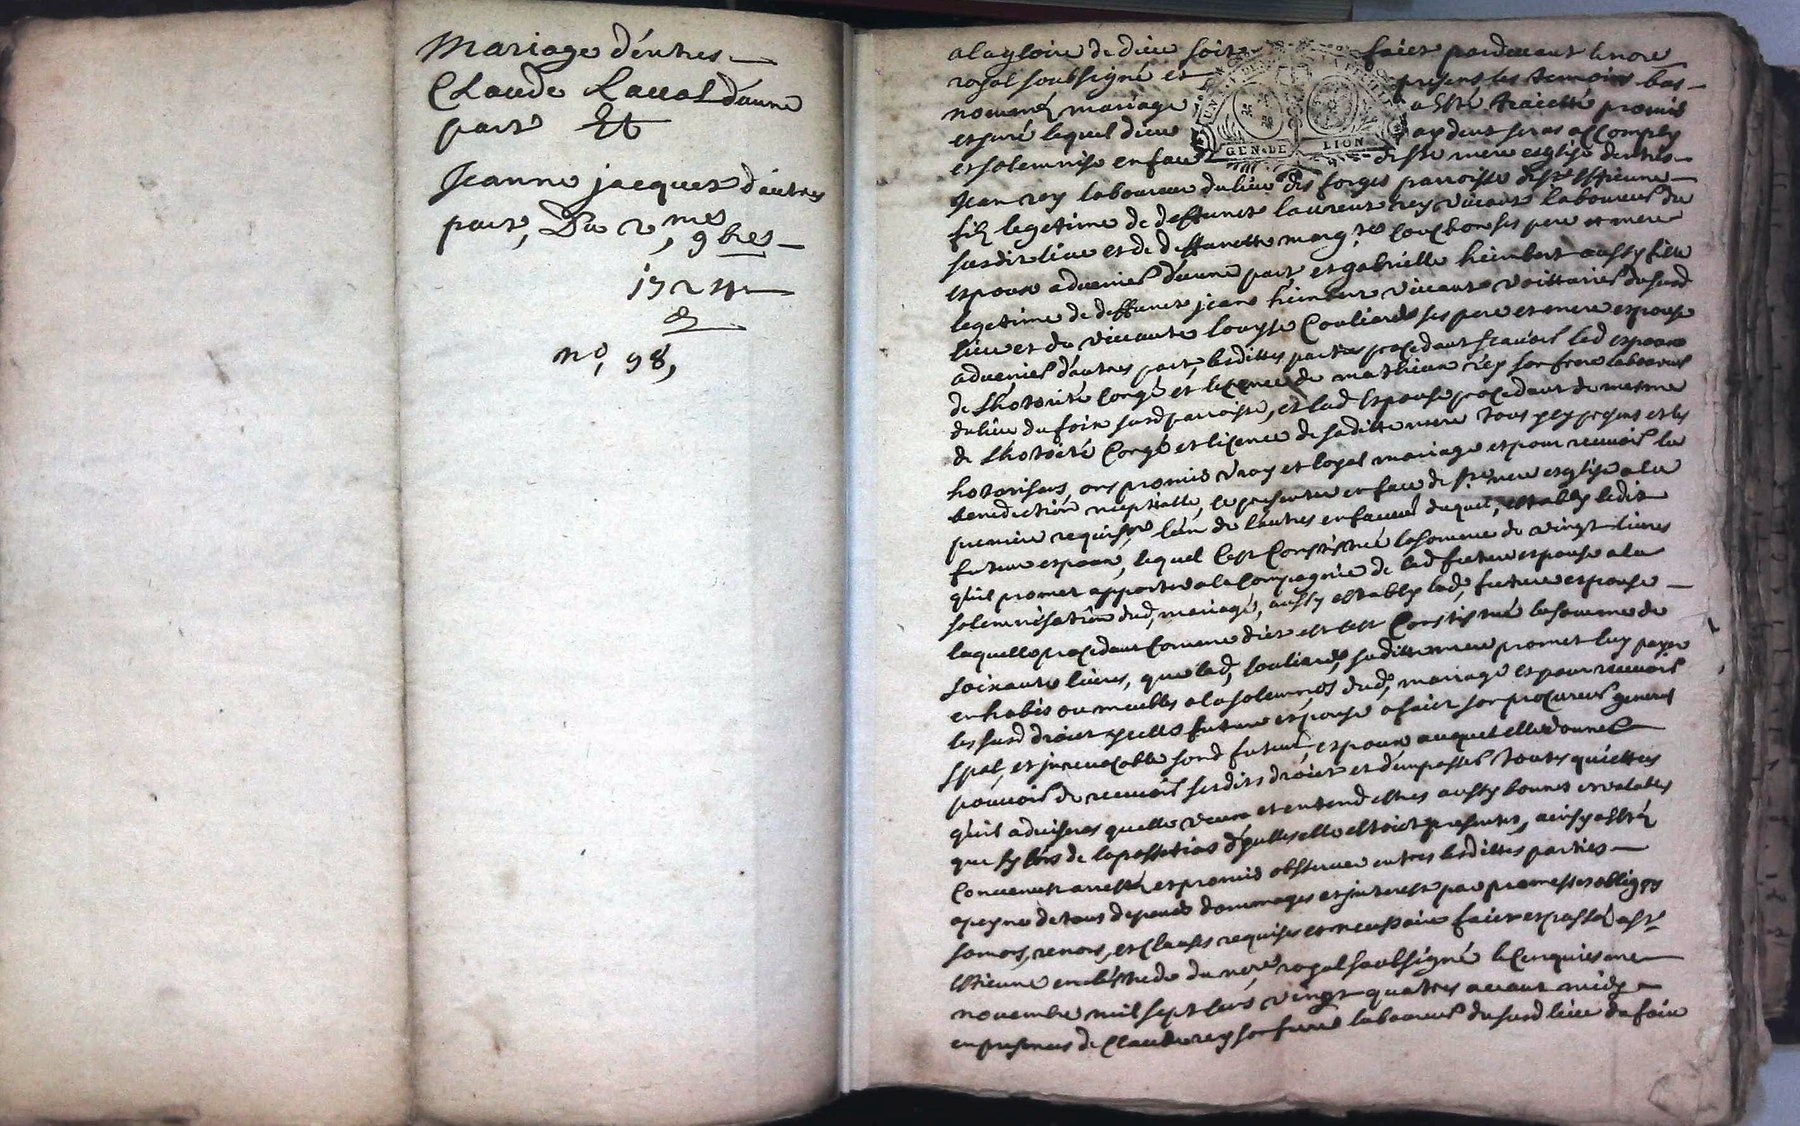 Mariage d'entres
Claude Laval d'aune
part Et
Jeanne jacquet d'autres
part, Du 2me 9bre
1724
no, 98,
a la gloire de dieu soit faict pardevant le nore
royal soubsigné et presens les temoins bas
nommés mariage a esté traicté promis
et juré lequel dieu aydant seras accomply
et solemnise en face de ste mere esglise d'entres
Jean rey laboureur du lieu des forges parroisse de st Estienne
fils legetime de deffunct laurent rey vivant laboureur du
susdit lieu et de deffuncte marg,te ses pere et mere
espoux advenier d'aune part et gabrielle heimbert aussy fille
legetime de deffunct jean heimbert vivant voitturier dususd
lieu et de vivante louyse Couliard ses pere et mere espouse
advenier d'autres part, lesdittes parties procedant scavoir led espoux
de L'hotorité Congé et licence de mathieu rey son frere laboureur
du lieu du foin susd parroisse, et lad Espouse procedant de mesme
de L'hotorité Congé et licence de saditte mere tous ycy presens et les
hotorisans ons promis vray et loyal mariage et pour recevoir la
benediction nuptialle, se presenter en face de ste mere esglise a la
premiere requise L'un de L'autres en faveur duquel, establis ledit
futur espoux, lequel C'est Constitué la somme de vingt livres
qu'il promet apporter a la Compagnie de lad future espouse a la
solemnisation dud, mariage, aussy establys lad, future espouse
laquelle procedant Comme dict est s'est Constitué la somme de
soixante livres, que lad, Couliard saditte mere promet luy payer
en habis ou meubles a la solemnité dud, mariage et pour recevoir
les susd droict ycelle future espouse a faict son procureur general
spal, et jrrevocable sond futur espoux auquel elle donne
pouvoir de recevoir sesdits droict et d'en passer toutes quiettes
qu'il advisera quelle veux et entend estres aussy bonnes et valables
que sy lors de la passation d'ycelles elle estoict presente, ainsy a esté
Convenu arresté et promis observer entres lesdittes parties
a peyne de tous depends dommages et jnterest par promesses obligons
somons, renons, et Clauses requises et necessaire faict et passé a st
Estienne en L'estude du nore royal soubsigné le Cinquiesme
novembre mil sept Cens vingt quatres avant midy
en presence de Claude rey son frere laboureur du susd lieu du foin